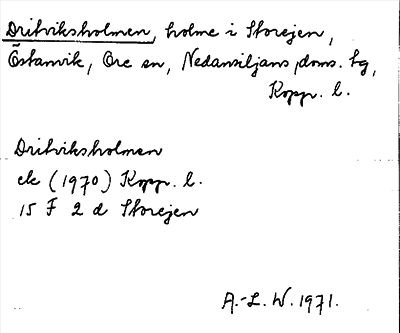 Dritviksholmen, holme i Storejen,
Östanvik, Ore sn, Nedansiljans doms. tg,
Kopp. l.
Dritviksholmen
ek (1970) Kopp. l.
15 F 2 d Storejen
A.-L. W. 1971.